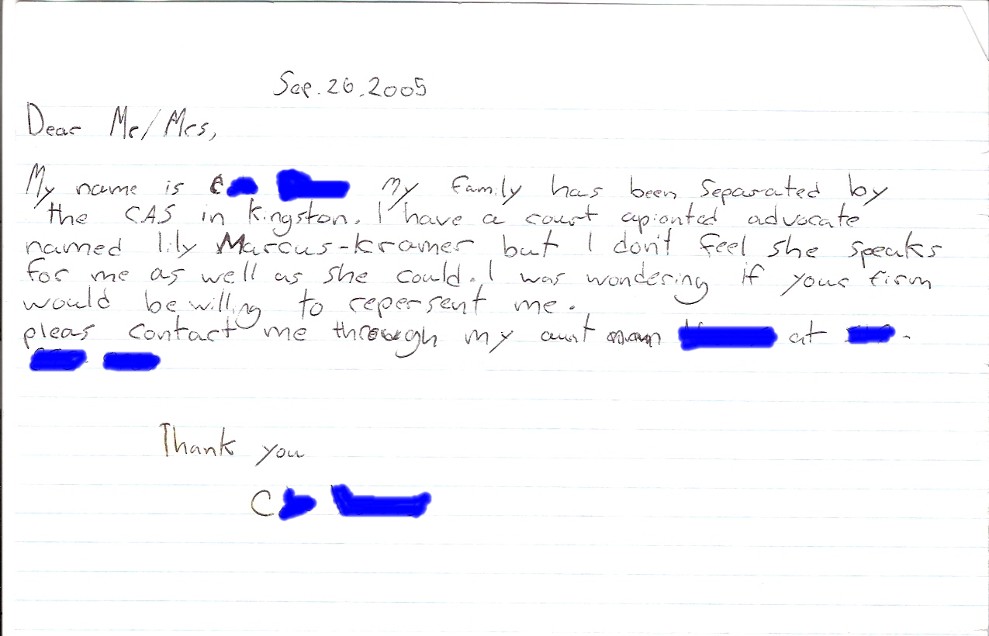 Sep. 26, 2005
Dear Mr/Mrs,
My name is C My family has been Separated by
the CAS in kingston. I have a court apionted advocate
named lily Marcus-kramer but I don't feel she speaks
for me as well as she could. I was wondering if your firm
would be willing to repersent me.
pleas contact me through my aunt at -
Thank you
C